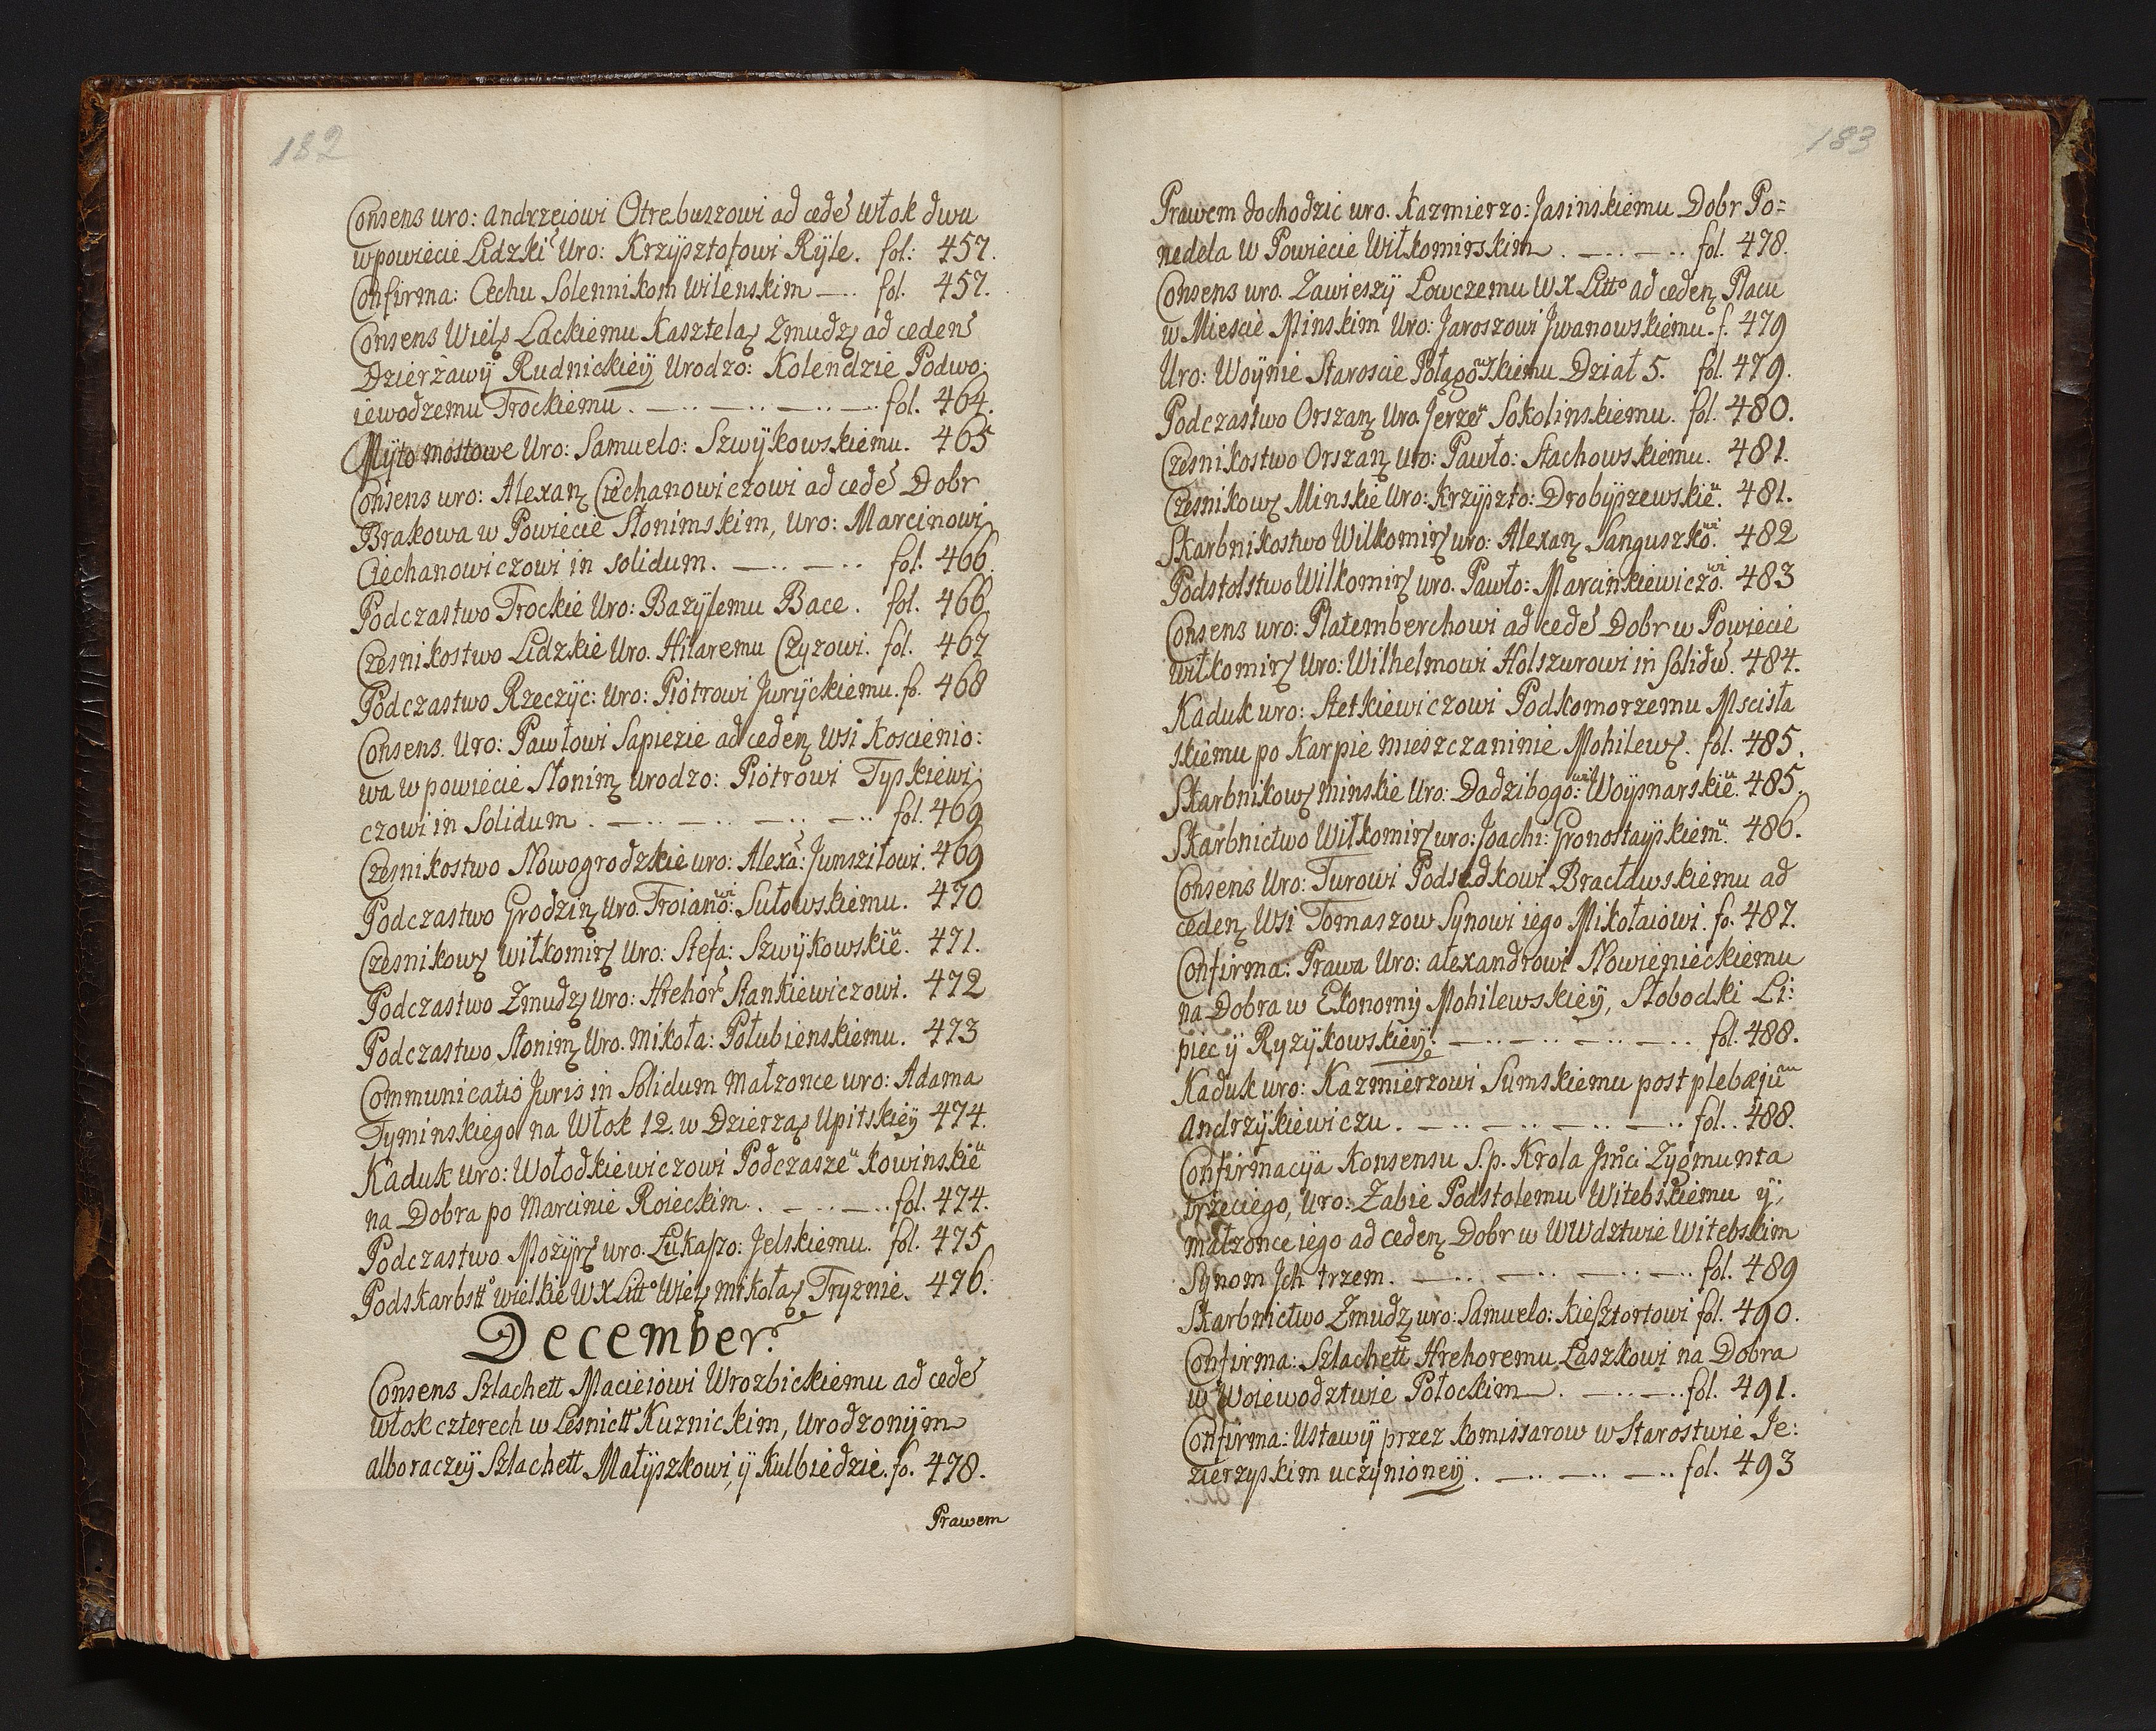 182
Consens uro: Andrzeiowi Otrebuszowi ad cedeˢ włok dwu
w powiecie Lidzkiˢ Uro: Krzysztofowi Ryle. fol: 457.
Confirma: Cechu Solennikom Wilenskim —.. fol. 457.
Consens Wielʒ Lackiemu Kasztelaʒ Zmudʒ ad cedenˢ
Dzierżawÿ Rudnickieÿ Urodzo: Kolendzie Podwo:
iewodzemu Trockiemu. —.. —.. —.. — fol. 464.
Mÿto mostowe Uro: Samuelo: Szwÿkowskiemu. 465
Consens uro: Alexanʒ Ciechanowiczowi ad cedeˢ Dobr
Brakowa w Powiecie Słonimskim, Uro: Marcinowi
Ciechanowiczowi in solidum. —.. —.. fol. 466.
Podczastwo Trockie Uro: Bazÿlemu Bace. fol. 466.
Czesnikostwo Lidzkie Uro. Hilaremu Czyzowi. fol. 467
Podczastwo Rzeczÿc: Uro: Piotrowi Jurÿckiemu. fo. 468
Consens. Uro: Pawłowi Sapiezie ad cedenʒ Wsi Koscienio:
wa w powiecie Słonimʒ urodzo: Piotrowi Tyskiewi:
czowi in Solidum. —.. —.. —.. —.. fol. 469
Czesnikostwo Nowogrodzkie uro: Alexaˢ: Junsziłowi. 469
Podczastwo Grodzinʒ Uro. Troianoʷⁱ: Sułowskiemu. 470
Czesnikowʒ Wiłkomirʒ Uro: Stefa: Szwÿkowskieᵘ. 471.
Podczastwo Zmudʒ uro: Hrehorˢ Stankiewiczowi. 472
Podczastwo Słonimʒ Uro. Mikoła: Połubienskiemu. 473
Communicatio Juris in Solidum Małzonce uro: Adama
Tyminskiego na Włok 12. w Dzierzaʒ Upitskieÿ 474.
Kaduk uro: Wołodkiewiczowi Podczaszeᵘ Kowinskieᵘ
na Dobra po Marcinie Roieckim. . —.. —.. fol. 474.
Podczastwo Mozÿrʒ uro. Łukaszo: Jelskiemu. fol. 475
Podskarbstᵒ wielkie W X Littᵒ Wielʒ Mikołaʒ Tryznie. 476.
December.
Consens Szlachett Macieiowi Wrozbickiemu ad cedeˢ
włok czterech w Lesnictᵒ Kuznickim, Urodzonÿm
albo raczeÿ Szlachett Małÿszkowi, ÿ Kulbiedzie. fo. 478.
Prawem
183
Prawem dochodzic uro. Kazmierzo: Jasinskiemu Dobr Po=
nedela w Powiecie Wiłkomirskim. —.. —.. fol. 478.
Consens uro. Zawieszÿ Łowczemu W X Littᵒ ad cedenʒ Placu
w Miescie Minskim Uro: Jaroszowi Jwanowskiemu. f. 479
Uro: Woÿnie Staroscie Połągowskiemu Dział 5. fol. 479.
Podczastwo Orszanʒ Uro. Jerzeᵘ Sokolinskiemu. fol. 480.
Czesnikostwo Orszanʒ Uro: Pawło: Stachowskiemu. 481.
Czesnikowʒ Minskie Uro: Krzÿszto: Drobÿszewskieᵘ. 481.
Skarbnikostwo Wilkomirʒ uro: Alexanʒ Sanguszkoʷⁱ. 482
Podstolstwo Wilkomirʒ uro. Pawło: Marcinkiewiczoʷⁱ. 483
Consens uro: Platemberchowi ad cedeˢ Dobr w Powiecie
wiłkomirʒ Uro: Wilhelmowi Holszurowi in soliduˢ. 484.
Kaduk uro: Stetkiewiczowi Podkomorzemu Mscisła
skiemu po Karpie mieszczaninie Mohilewʒ. fol. 485.
Skarbnikowʒ Minskie Uro: Dadzibogoʷⁱ: Woÿsnarskieᵘ. 485.
Skarbnictwo Wiłkomirʒ uro: Joachi: Gronostaÿskiemᵘ. 486.
Consens Uro: Turowi Podsędkowi Bracławskiemu ad
cedenʒ Wsi Tomaszow Synowi iego Mikołaiowi. fo. 487.
Confirma: Prawa Uro: Alexandrowi Nowienieckiemu
na Dobra w Ekonomÿ Mohilewskieÿ, Słobodki Li:
piec ÿ Ryzÿkowskieÿ. —.. —.. —.. —.. fol. 488.
Kaduk uro: Kazmierzowi Sumskiemu post plebæjuᵐ
Andrzÿkiewiczu. —.. —.. —.. —.. fol.. 488.
Confirmacÿa Konsensu S. p. Krola Jmᶜⁱ Zÿgmunta
trzeciego, Uro: Zabie Podstolemu Witebskiemu ÿ
małzonce iego ad cedenʒ Dobr w WWdztwie Witebskim
Synom Jch trzem. —.. —.. —.. —.. fol. 489
Skarbnictwo Zmudʒ uro: Samuelo: Kiesztortowi fol. 490.
Confirma: Szlachett Hrehoremu Łaszkowi na Dobra
w Woiewodztwie Połockim. —.. —.. fol. 491.
Confirma: Ustawÿ przez Komissarow w Starostwie Je:
zierzÿskim uczÿnioneÿ. —.. —.. —.. fol. 493